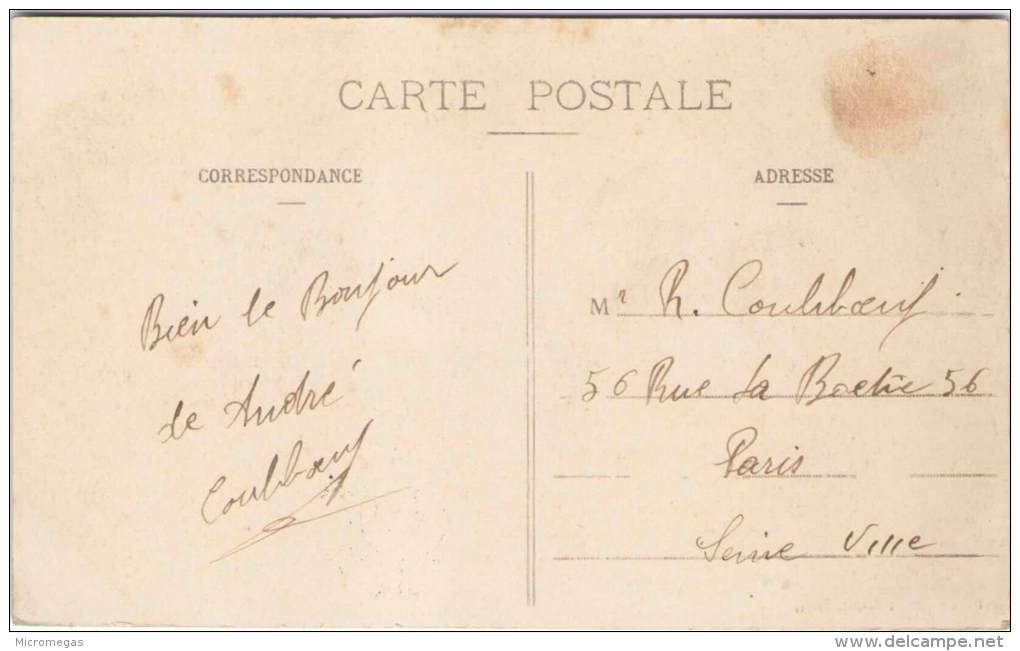 CARTE POSTALE
CORRESPONDANCE
ADRESSE
Bien le Bonjour
de André
Coulboeuf
Mr R. Coulboeuf
56 Rue La Boetie 56
Paris
Seine Ville
Micromegas
www.delcampe.net